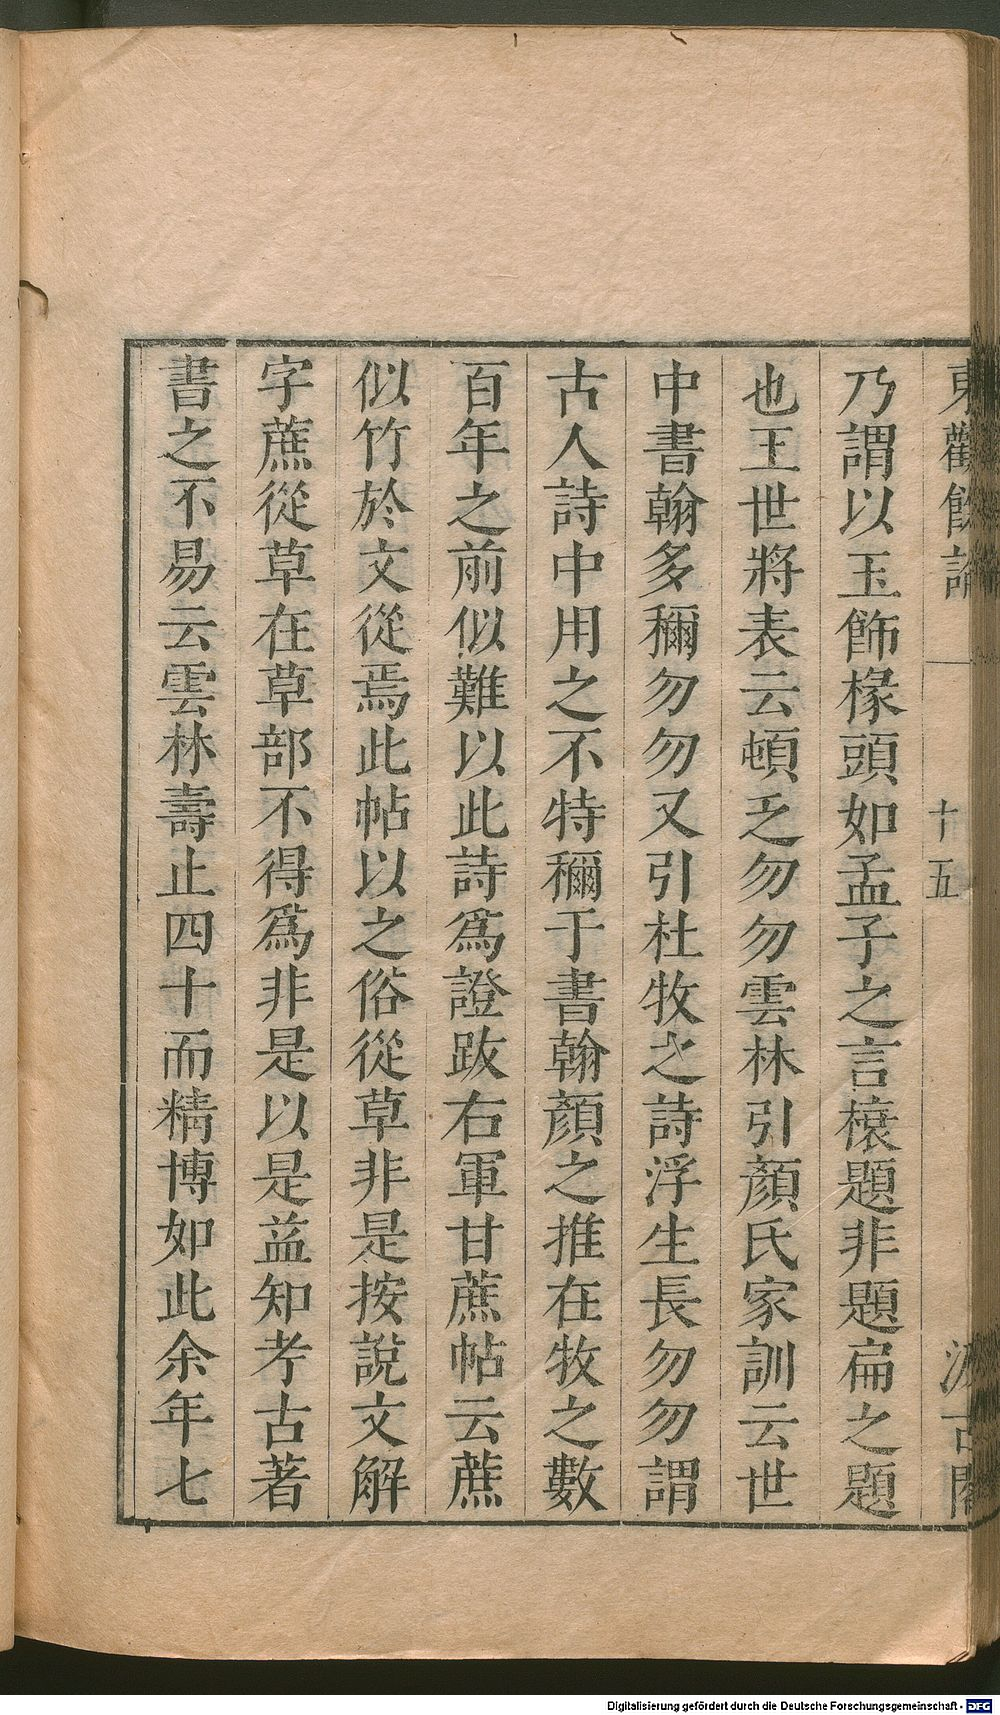 東觀餘論
十五
汲古閣
乃謂以玉飾椽頭如孟子之言榱題非題扁之題
也王世將表云頓乏勿勿雲林引顏氏家訓云世
中書翰多稱勿勿又引杜牧之詩浮生長勿勿謂
古人詩中用之不特稱于書翰顏之推在牧之數
百年之前似難以此詩爲證跋右軍甘蔗帖云蔗
似竹於文從焉此帖以之俗從草非是按說文解
字蔗從草在草部不得爲非是以是益知考古著
書之不易云雲林壽止四十而精博如此余年七
Digitalisierung gefördert durch die Deutsche Forschungsgemeinschaft - DFG